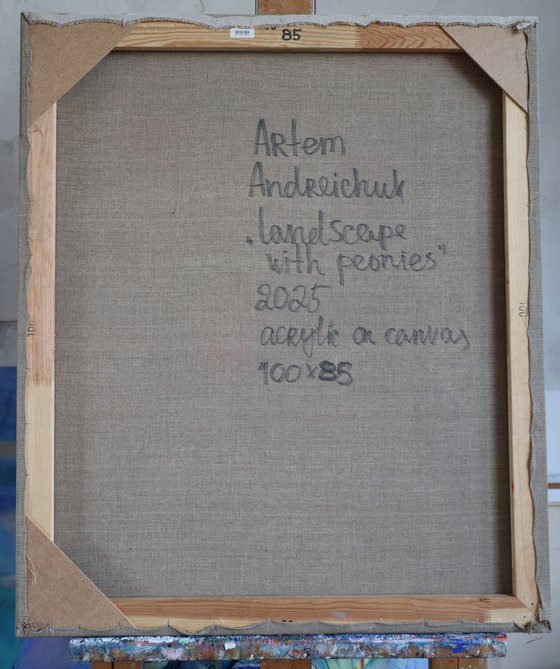 85
Artem
Andreichuk
„landscape
with peonies"
2025
acrylic on canvas
100x85
100
100